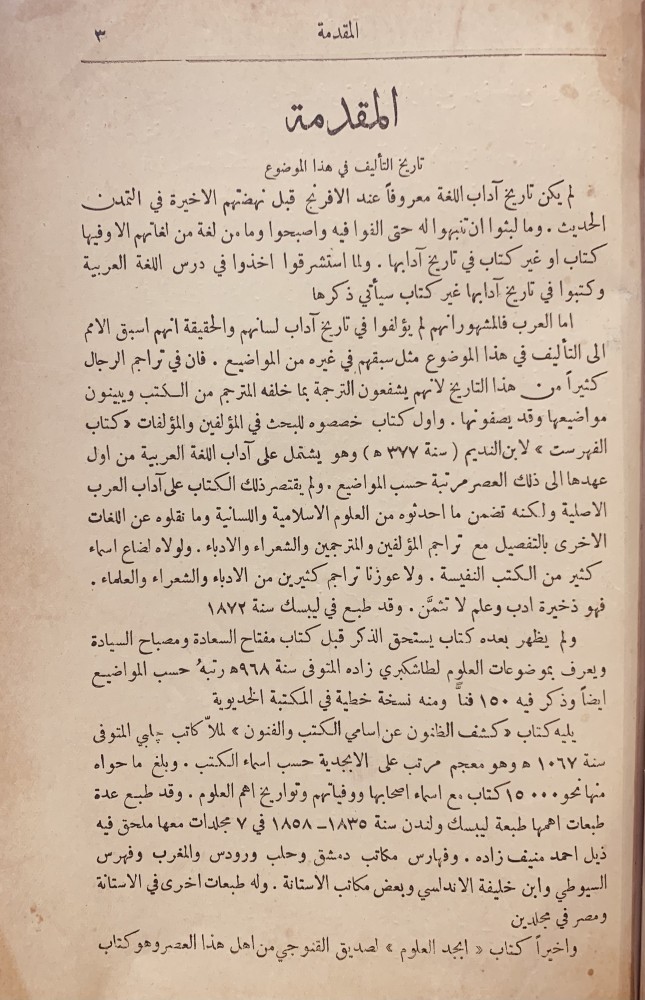 المقدمة ٣
المقدمة
تاريخ التأليف في هذا الموضوع
لم يكن تاريخ آداب اللغة معروفاً عند الافرنج قبل نهضتهم الاخيرة في التمدن
الحديث . وما لبثوا ان تنبهوا له حتى الفوا فيه واصبحوا وما من لغة من لغاتهم الا وفيها
كتاب او غير كتاب في تاريخ آدابها . ولما استشرقوا اخذوا في درس اللغة العربية
وكتبوا في تاريخ آدابها غير كتاب سيأتي ذكرها
اما العرب فالمشهور انهم لم يؤلفوا في تاريخ آداب لسانهم والحقيقة انهم اسبق الامم
الى التأليف في هذا الموضوع مثل سبقهم في غيره من المواضيع . فان في تراجم الرجال
كثيراً من هذا التاريخ لانهم يشفعون الترجمة بما خلفه المترجم من الكتب ويبينون
مواضيعها وقد يصفونها . واول كتاب خصصوه للبحث في المؤلفين والمؤلفات «كتاب
الفهرست » لابن النديم ( سنة ٣٧٧ ه ) وهو يشتمل على آداب اللغة العربية من اول
عهدها الى ذلك العصر مرتبة حسب المواضيع . ولم يقتصر ذلك الكتاب على آداب العرب
الاصلية ولكنه تضمن ما احدثوه من العلوم الاسلامية واللسانية وما نقلوه عن اللغات
الاخرى بالتفصيل مع تراجم المؤلفين والمترجمين والشعراء والادباء . ولولاه لضاع اسماء
كثير من الكتب النفيسة . ولا عوزنا تراجم كثيرين من الادباء والشعراء والعلماء .
فهو ذخيرة ادب وعلم لا تثمَّن . وقد طبع في ليبسك سنة ١٨٧٢
ولم يظهر بعده كتاب يستحق الذكر قبل كتاب مفتاح السعادة ومصباح السيادة
ويعرف بموضوعات العلوم لطاشكبري زاده المتوفى سنة ٩٦٨ه رتبهُ حسب المواضيع
ايضاً وذكر فيه ١٥٠ فناً ومنه نسخة خطية في المكتبة الخديوية
يليه كتاب «كشف الظنون عن اسامي الكتب والفنون » لملاّ كاتب چلبي المتوفى
سنة ١٠٦٧ ه وهو معجم مرتب على الابجدية حسب اسماء الكتب . وبلغ ما حواه
منها نحو ١٥٠٠٠ كتاب مع اسماء اصحابها ووفياتهم وتواريخ اهم العلوم . وقد طبع عدة
طبعات اهمها طبعة ليبسك ولندن سنة ١٨٣٥–١٨٥٨ في ٧ مجلدات معها ملحق فيه
ذيل احمد منيف زاده . وفهارس مكاتب دمشق وحلب ورودس والمغرب وفهرس
السيوطي وابن خليفة الاندلسي وبعض مكاتب الاستانة . وله طبعات اخرى في الاستانة
ومصر في مجلدين
واخيراً كتاب « ابجد العلوم » لصديق القنوجي من اهل هذا العصر وهو كتاب